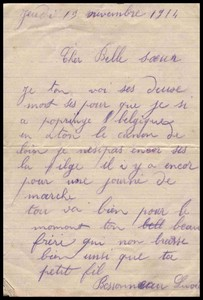 Jeudi 19 novembre 1914
Cher Belle soeur
je ton voi ses deuve
most ses pour que je si
a popringe Belgique
en aton le canon de
loin je nest pas encor ses
la filge il i y a encor
pour une journé de
marche
tou vai bien pour le
moment ton beau
frère qui non
bien unsi que ta
petit fil
Bessonneau